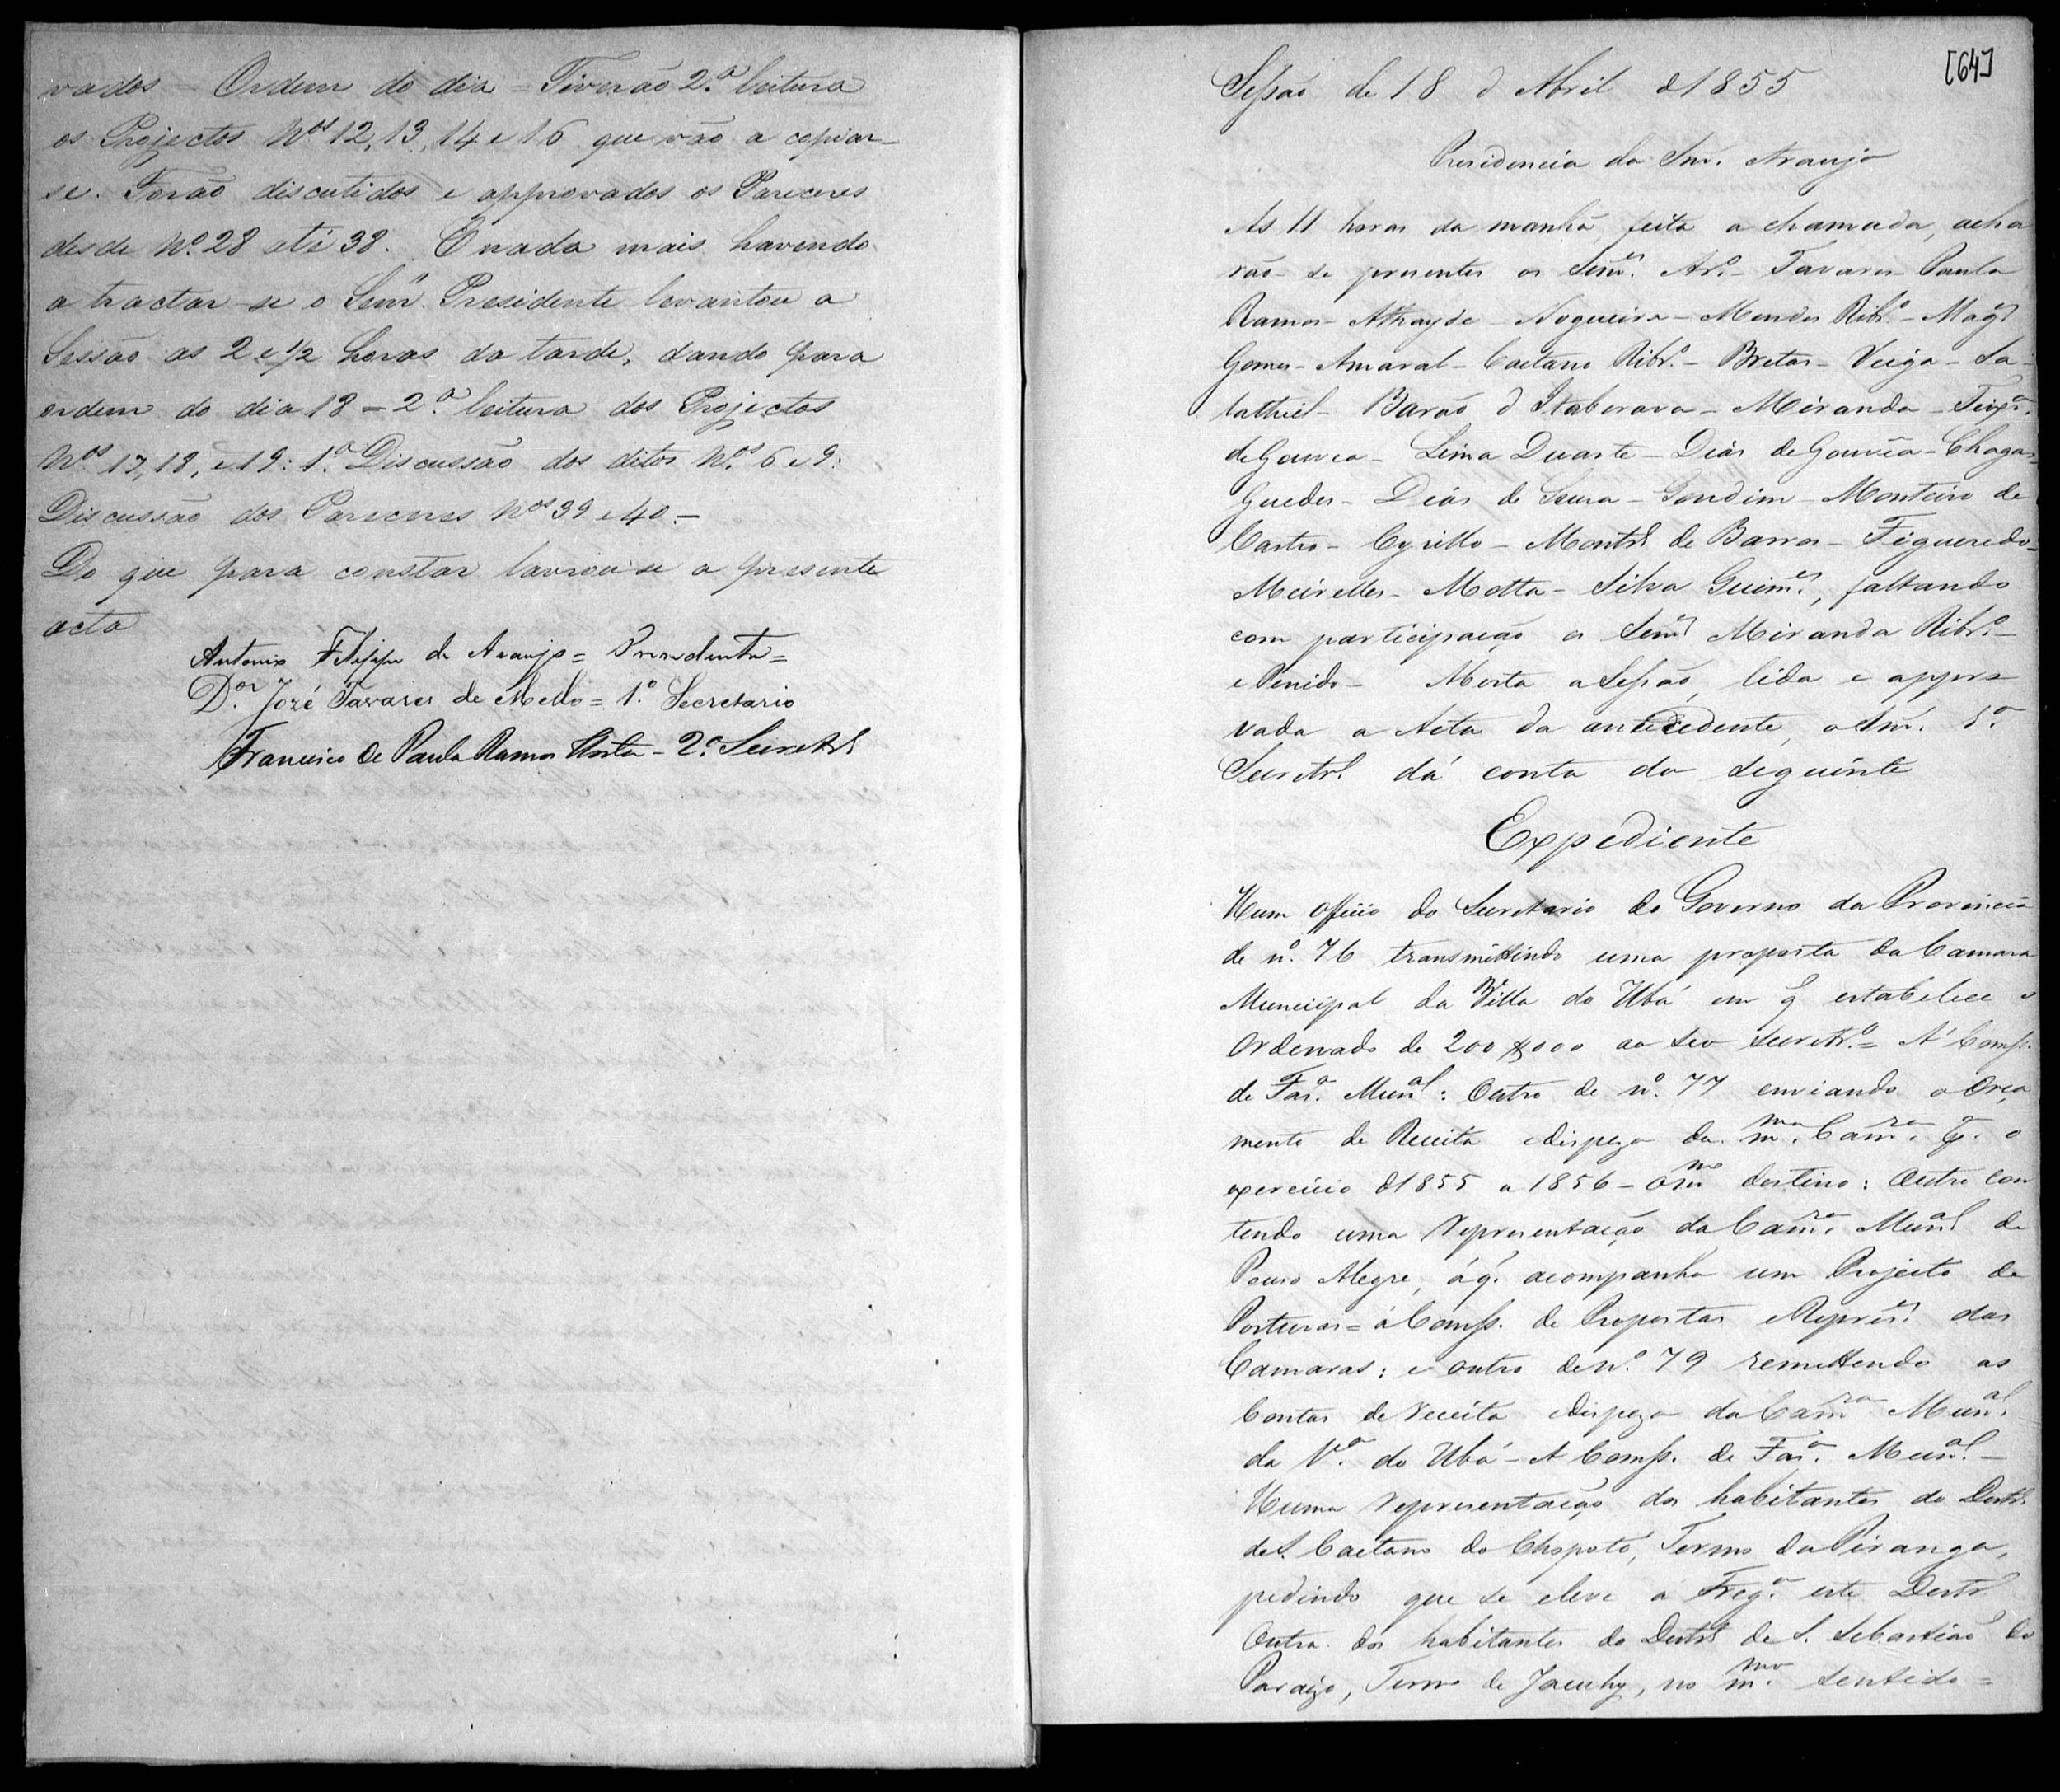 vados – Ordem do dia = Tiverão 2.ª leitura
os Projectos Nos 12, 13, 14 e 16 que vão a copiar-
se. Forão discutidos e approvados os Pareceres
desde Nº 28 até 38. E nada mais havendo
a tractar-se o Senr. Presidente levantou a
Sessão as 2 e 1/2 horas da tarde, dando para
ordem do dia 18 = 2.ª leitura dos Projectos
Nos 17, 18, e 19: 1.ª Discussão dos ditos Nos 6 e 9:
Discussão dos Pareceres Nos 39 e 40.–
Do que para constar lavrou-se a presente
acta
Antonio Filippe de Araujo = Presidente =
D.or Jozé Tavares de Mello = 1.º Secretario
Francisco de Paula Ramos Horta – 2.º Secretrº
[64]
Sessão de 18 d Abril d 1855
Presidencia do Snr. Araujo
As 11 horas da manhã, feita a chamada, acha
rão-se presentes os Senres. Arº – Tavares – Paula
Ramos – Athayde – Nogueira – Mendes Ribrº – Mages
Gomes – Amaral – Caetano Ribrº – Bretas – Veiga – Sa-
lathiel – Barão d Itaberava – Miranda – Teixrª
de Gouvea – Lima Duarte – Dias de Gouvêa – Chagas –
Guedes – Dias de Souza – Gondim – Monteiro de
Castro – Cyrillo – Montrº de Barros – Figueredo –
Meirelles – Motta – Silva Guimes, faltando
com participação os Senres Miranda Ribrº –
e Penido – Aberta a Sessão, lida e appro
vada a Acta da antecedente, o Snr. 1º
Secretrº dá conta do seguinte
Expediente
Hum officio do Secretario do Governo da Provincia
de nº 76 transmittindo uma proposta da Camara
Municipal da Villa do Ubá em q estabelece o
Ordenado de 200$000 ao seo Secretrº = A' Comss.
de Fazª Munal: Outro de nº 77 enviando o Orça
mento de Receita e dispeza da mma Camra pª o
exercicio d 1855 a 1856 – O mmo destino: Outro con
tendo uma representação da Camra Munal de
Pouso Alegre, á q. acompanha um Projecto de
Posturas = á Comss. de Propostas e Repres. das
Camaras: e outro de nº 79 remettendo as
Contas de receita e dispeza da Camra Munal
da Vª do Ubá – A Comss. de Fazª Munal –
Huma representação dos habitantes do Destrº
de S. Caetano do Chopotó, Termo da Piranga,
pedindo que se eleve a Fregª este Destrº
Outra dos habitantes do Destrº de S. Sebastião do
Paraizo, Termo de Jacuhy, no mmo sentido =